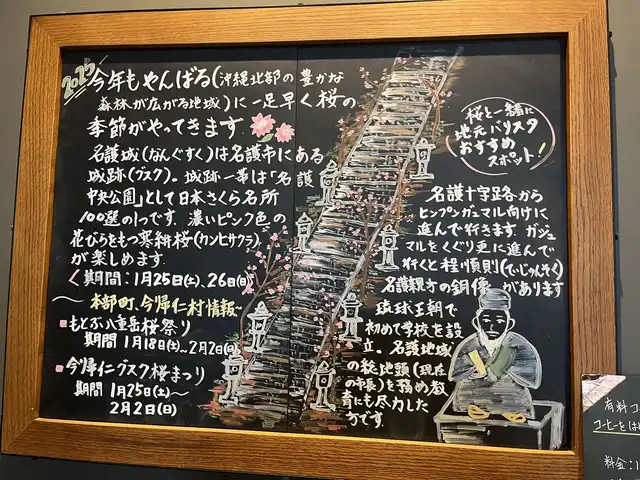 2025
今年もやんばる(沖縄北部の豊かな
森林が広がる地域)に一足早く桜の
季節がやってきます
名護城(なんぐすく)は名護市にある
城跡(グスク)。城跡一帯は「名護
中央公園」として日本さくら名所
100選の1つです。濃いピンク色の
花びらをもつ寒緋桜(カンヒサクラ)
が楽しめます。
く期間:1月25日(土)、26日(日)
〜本部町、今帰仁村情報〜
もとぶ八重岳桜祭り
期間 1月18日(土)〜2月2日(日)
今帰仁グスク桜まつり
期間 1月25日(土)〜
2月2日(日)
桜と一緒に
地元バリスタ
おすすめ
スポット!
名護十字路から
ヒンプンガジュマル向けに
進んで行きます。ガジュ
マルをくぐり更に進んで
行くと程順則(ていじゅんそく)
名護親方の銅像があります
琉球王朝で
初めて学校を設
立。名護地域
の総地頭(現在
の市長)を務め教
育にも尽力した
方です。
有料コ
コーヒーをは
料金:1